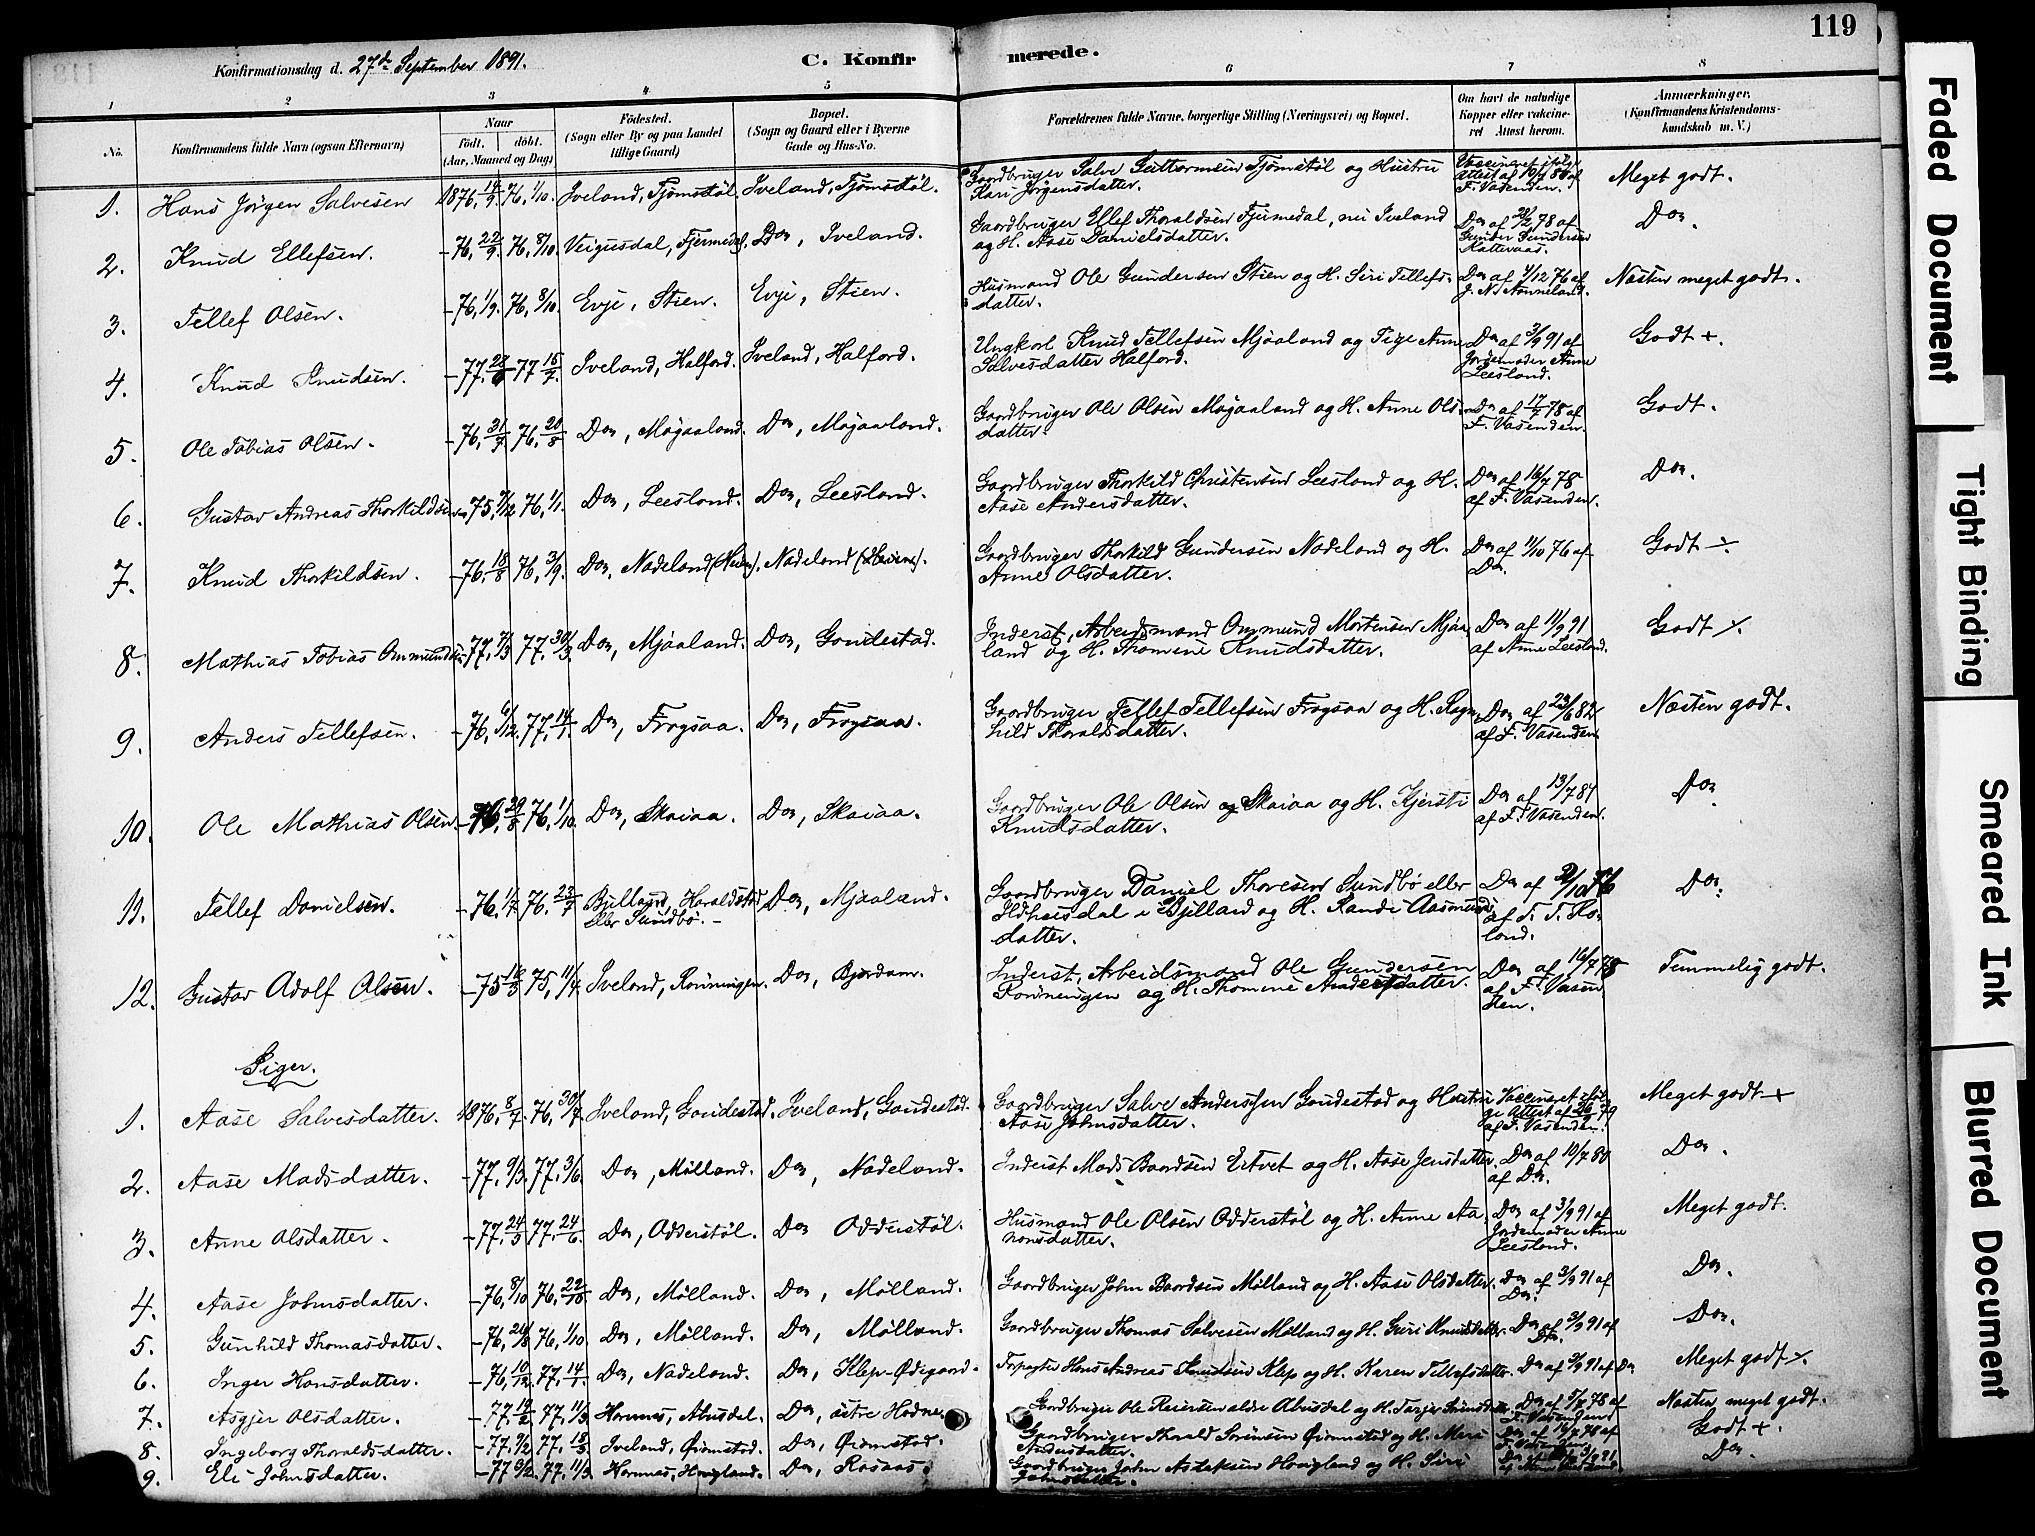 119
Konfirmationsdag d. 27de September 1891.
C. Konfirmerede.
1 2 3 4 5 6 7 8
No.
Konfirmandens fulde Navn (ogsaa Efternavn)
Naar
født. døbt.
(Aar, Maaned og Dag)
Fødested.
(Sogn eller By og paa Landet
tillige Gaard)
Bopæl.
(Sogn og Gaard eller i Byerne
Gade og Hus-No.
Forældrenes fulde Navne, borgerlige Stilling (Næringsvei) og Bopæl.
Om havt de naturlige
Kopper eller vakcine-
ret Attest herom.
Anmærkninger.
(Konfirmandens Kristendoms-
kundskab m. V.)
1. Hans Jørgen Salvesen 1876, 14/9 76, 1/10. Iveland, Tjømstøl. Iveland, Tjømstøl. Gaardbruger Salve Guttormsen Tjømstøl og Hustru Vaccineret ifølge Meget godt.
Kari Jørgensdatter. Attest af F. Vasenden.
2. Knud Ellefsen. - 76, 22/9. 76, 8/10. Veigusdal, Fjermedal. Do, Iveland. Gaardbruger Ellef Thoraldsen Fjermedal, nu Iveland Do af 78 af Do.
og H. Aase Danielsdatter. Gunder Gundersen Kateraas.
3. Tellef Olsen. - 76, 1/9. 76, 8/10. Evje, Stien. Evje, Stien. Husmand Ole Gundersen Stien og H. Siri Tellefs- Do af 1/12 76 af Næsten meget godt.
datter.
4. Knud Knudsen. - 77. 77 15/7. Iveland, Halford. Iveland, Halford. Ungkarl Knud Tellefsen Mjaaland og Pige Anne Do af 3/9 91 af Godt +.
Salvesdatter Halford. Jordemoder Anne Leesland.
5. Ole Tobias Olsen. - 76, 21/7. 76, 20/8 Do, Møjaaland. Do, Møjaaland. Gaardbruger Ole Olsen Møjaaland og H. Anne Ols- Do af 17/7 78 af Godt.
datter. F. Vasenden.
6. Gustav Andreas Thorkildsen - 75, 7/12 76, 1/1. Do, Leesland. Do, Leesland. Gaardbruger Thorkild Christensen Leesland og H. Do af 16/7 78 Do.
Aase Andersdatter. af F. Vasenden.
7. Knud Thorkildsen. - 76, 18/8 76, 3/9. Do, Nadeland (Heien). Nadeland (Heien). Gaardbruger Thorkild Gundersen Nadeland og H. Do af 11/10 76 af Godt ÷.
Anne Olsdatter. Do.
8. Mathias Tobias Ommundsen - 77, 7/3 77, 30/3. Do, Mjaaland. Do, Gaudestad. Inderst, Arbeidsmand Ommund Mortensen Mjaa- Do af 11/9 91 Godt ÷.
land og H. Thomine Knudsdatter. af Anne Leesland.
9. Anders Tellefsen. - 76, 6/12. 77, 14/1. Do, Frøysaa. Do, Frøysaa. Gaardbruger Tellef Tellefsen Frøysaa og H. Ragn- Do af 23/6 82 Næsten godt.
hild Thoraldsdatter. af F. Vasenden.
10. Ole Mathias Olsen - 76, 29/8 76, 1/10. Do, Skaiaa. Do, Skaiaa. Gaardbruger Ole Olsen Skaiaa og H. Kjersti Do af 13/7 81 Do.
Knudsdatter. af F. Vasenden.
11. Tellef Danielsen. - 76, 1/7 76, 23/7 Bjelland, Haraldstad Do, Mjaaland. Gaardbruger Daniel Thoresen Sundbø eller Do af 76 Do.
eller Sundbø. - i Bjelland og H. Randi Aasmunds-
datter.
12. Gustav Adolf Olsen. - 75 16/3 75, 11/4. Iveland, Rønningen. Do, Bjordam. Inderst, Arbeidsmand Ole Gundersen Do af 16/7 78 Temmelig godt.
Rønningen og H. Thomine Andersdatter. af F. Vasen-
den.
Piger.
1. Aase Salvesdatter. 1876, 8/7. 76, 30/7. Iveland, Gaudestad. Iveland, Gaudestad. Gaardbruger Salve Anderssen Gaudestad og Hustru Vaccineret iføl- Meget godt +
Aase Johnsdatter. ge Attest af 79
af F. Vasenden.
2. Aase Madsdatter. - 77, 9/3. 77, 3/6. Do, Mølland. Do, Nadeland. Inderst Mads Baardsen Ertvet og H. Aase Jensdatter. Do af 10/7 80 Do.
af Do.
3. Anne Olsdatter. - 77. 24/5 77. 24/6. Do, Odderstøl. Do Odderstøl. Husmand Ole Olsen Odderstøl og H. Anne Aa- Do af 3/9 91 af Meget godt.
nonsdatter. Jordemoder Anne Leesland.
4. Aase Johnsdatter. - 76, 8/10 76, 22/10 Do, Mølland. Do, Mølland. Gaardbruger John Baardsen Mølland og H. Aase Olsdatter. Do af 3/9 91 af Do.
Do.
5. Gunhild Thomasdatter. - 76, 26/8 76, 1/10 Do, Mølland. Do, Mølland. Gaardbruger Thomas Salvesen Mølland og H. Guri Knudsdatter. Do af 3/9 91 af Do.
Do.
6. Inger Hansdatter. - 76, 10/12. 77, 14/1. Do, Nadeland. Do, Klep-Ødegaard. Forpagter Hans Andreas Knudsen Klep og H. Karen Tellefsdatter. Do af 3/9 91 af Do Meget godt ÷.
7. Asgjer Olsdatter. - 77. 77, 11/3 Hornnes, Abusdal. Do, øitre Hodne. Gaardbruger Ole Abusdal og H. Do af 78 af Næsten meget godt.
F. Vasenden
8. Ingeborg Thoraldsdatter. - 77. 9/2. 77, 18/3 Iveland, Øiomstad. Do, Øiomstad. Gaardbruger Thorald Sørensen Øiomstad og H. Do af 78 af Godt +.
Andersdatter. F. Vasenden
9. Eli Johnsdatter. - 77 6/2. 77. 11/3 Hornnes, Hougland. Do, Rosaas. Gaardbruger John Aslaksen Hougland og H. Siri Do af 3/9 91 Do
Johnsdatter.
Faded Document
Tight Binding
Smeared Ink
Blurred Document